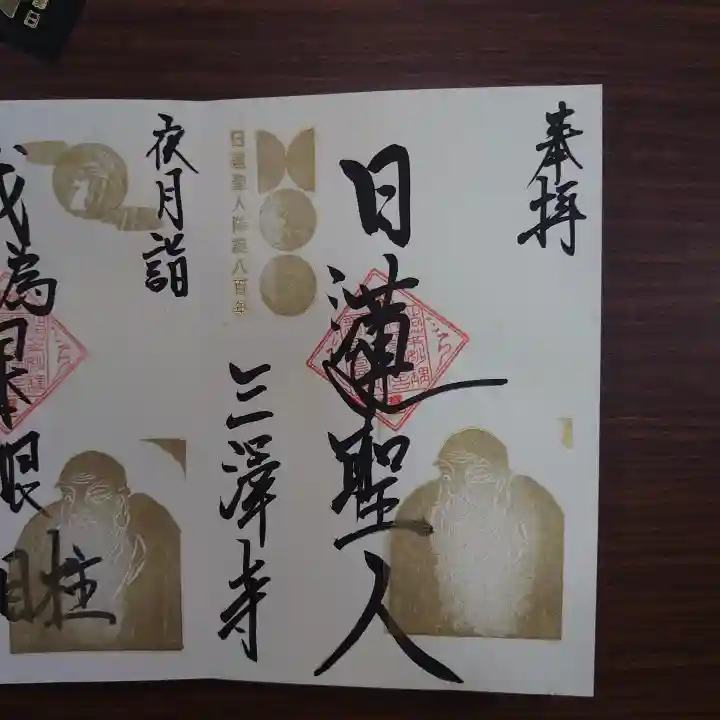 奉拝
日蓮聖人
日蓮聖人降誕八百年
三澤寺
夜月詣
我為日本眼目
柱